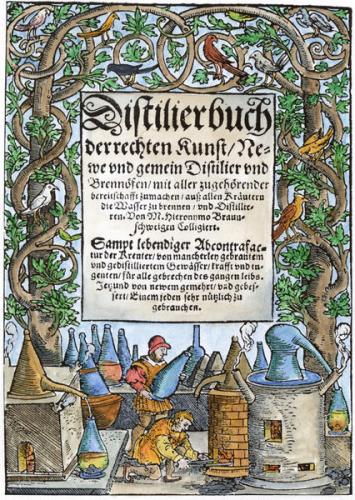 Distilierbuch
der rechten Kunst/ Ne-
we vnd gemein Distilier vnd
Brennöfen/ mit aller zugehörender
bereitschafft zumachen/ auß allen Kräutern
die Wasser zu brennen/ vnd Distillie-
ren. Von M. Hieronymo Braun-
schweigen Colligiert.
Sampt lebendiger Abcontrafac-
tur der Kreuter/ von mancherley gebrantem
und gedistilliertem Gewässer/ krafft vnd tu-
genten/ für alle gebrechen des gantzen leibs.
Jetzund von newem gemehrt/ vnd gebes-
sert/ Einem jeden sehr nützlich zu
gebrauchen.